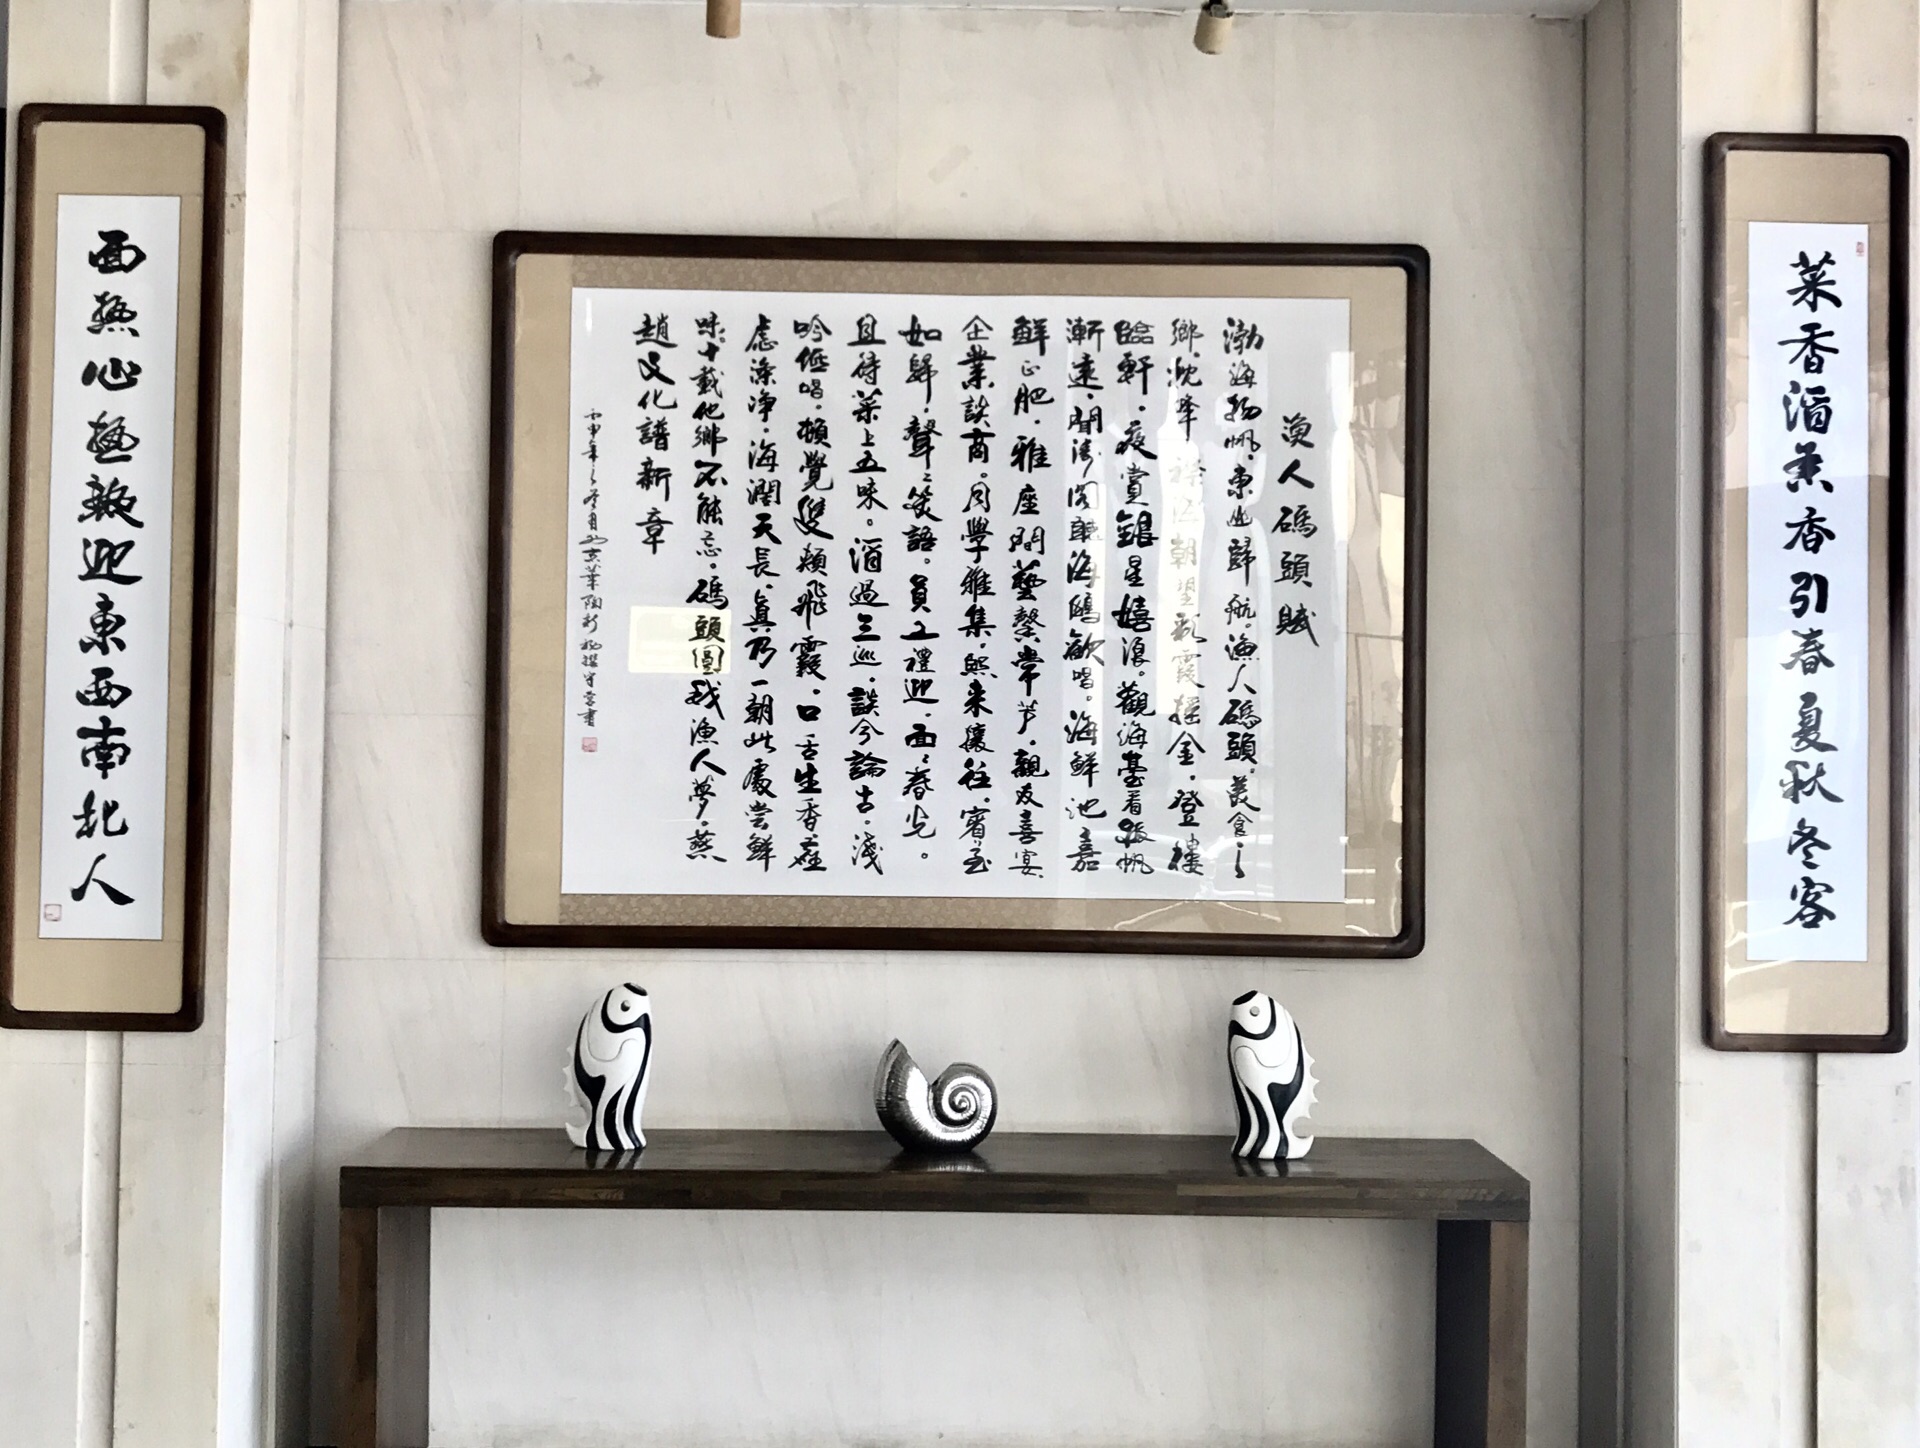 菜香酒香香引春夏秋冬客
漁人碼頭賦
渤海揚帆東山歸航漁人碼頭美食之
鄉 朝望 霞摇金登樓
臨軒夜賞銀星嬉浪觀海臺看 帆
漸遠聞濤閣聽海鷗歡唱海鮮池嘉
鮮正肥雅座間藝馨常芳親友喜宴
企業談商同學雅集熙來攘往賓至
如歸聲聲笑語員工禮迎面面春光
且待菜上五味酒過三巡談今論古淺
吟低唱頓覺雙頰飛霞口舌生香塵
慮滌净海潤天長真乃一朝此處嘗鮮
味十載他鄉不能忘碼頭圓我漁人夢燕
趙文化譜新章
丙申年之冬月 書
面熱心熱熱迎東西南北人